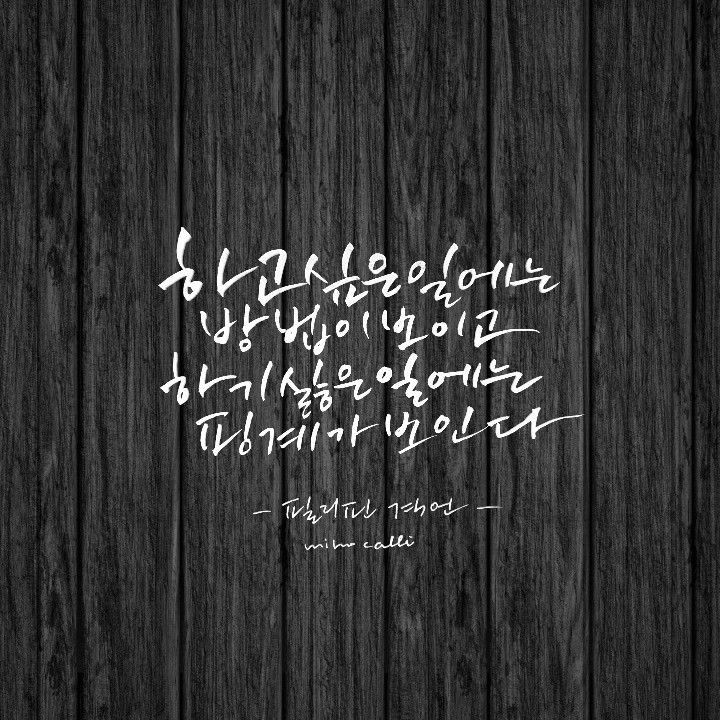 하고싶은일에는
방법이보이고
하기싫은일에는
핑계가보인다
- 필리핀 격언 -
mimo calli